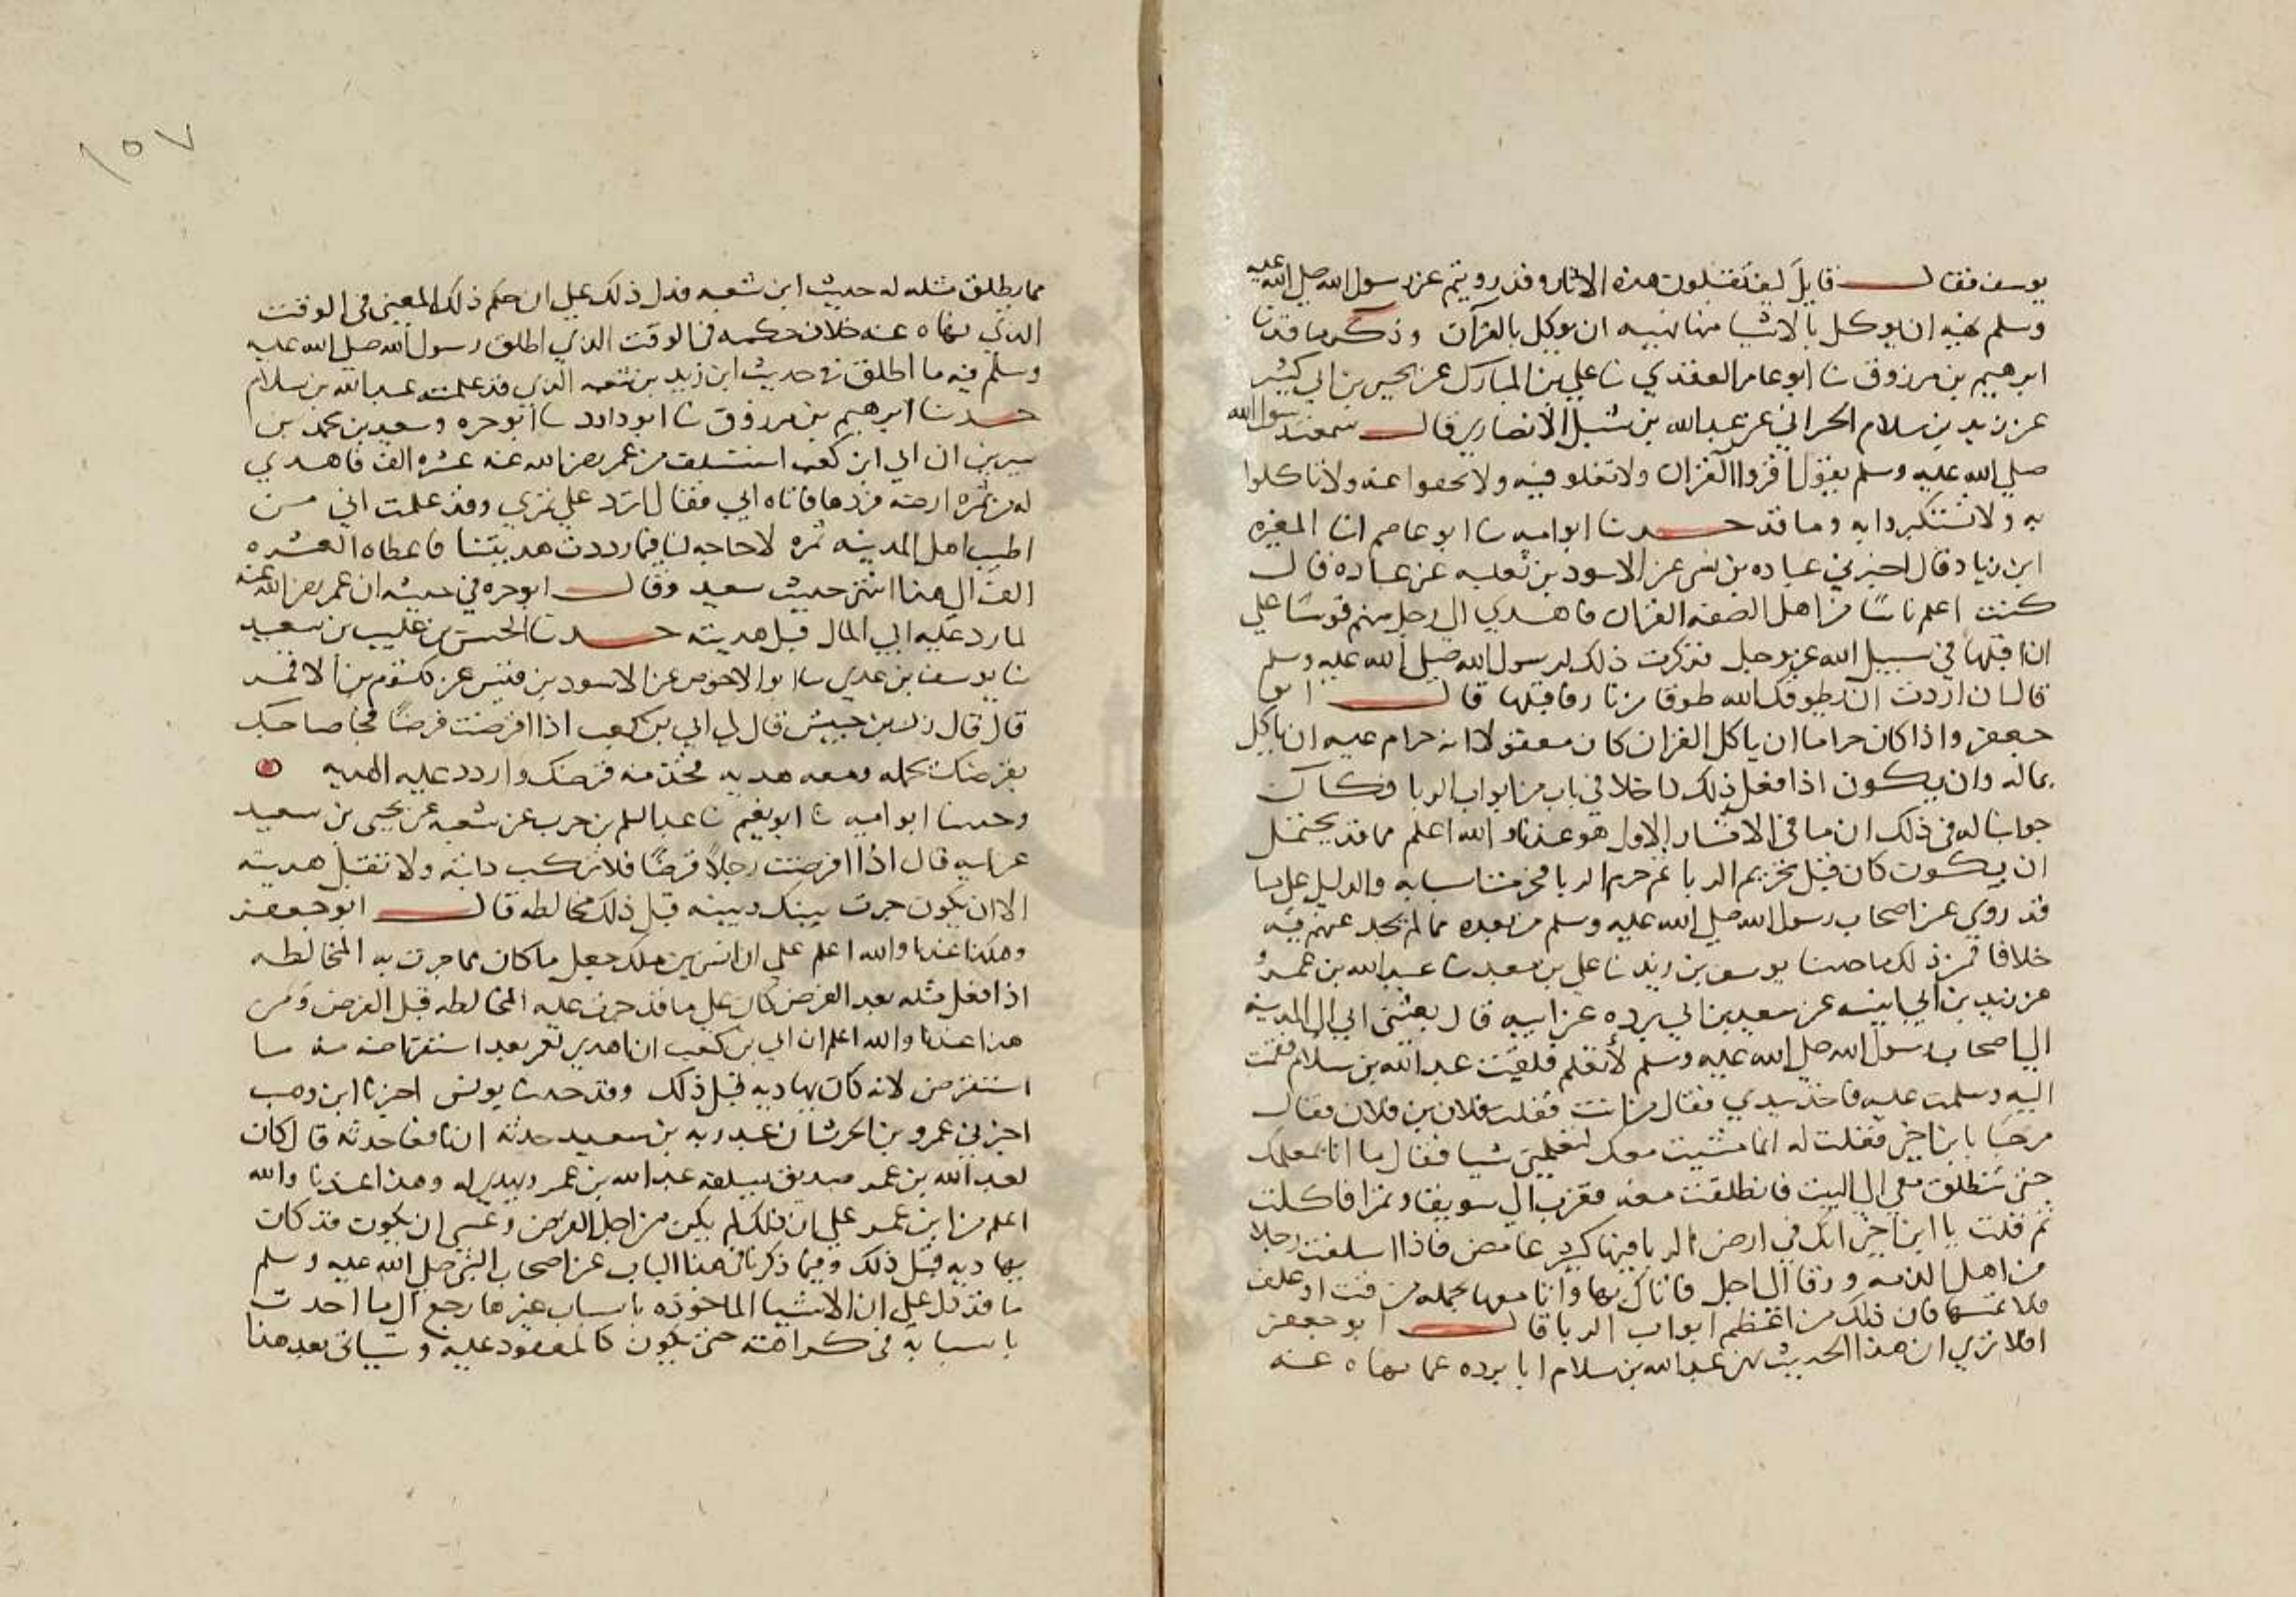 يوسف فقال قايل كيف تقبلون هذه الاثار وقد رويتم عن رسول الله صلى الله عليه
وسلم نهيه ان يوكل بالاشيا منها نهيه ان يوكل بالقرآن وذكر ما قد نا
ابرهيم بن مرزوق نا ابو عامر العقدي نا علي بن المبارك عن يحيى بن ابي كثير
عن زيد بن سلام الحراني عن عبد الله بن شبل الانصاري قال سمعت رسول الله
صلى الله عليه وسلم يقول اقروا القران ولا تغلو فيه ولا تجفوا عنه ولا تاكلوا
به ولا تستكبروا به وما قد حدنا ابو اميه نا ابو عاصم انا المغيره
ابن زياد قال اخبرني عباده بن نسي عن الاسود بن ثعلبه عن عباده قال
كنت اعلم ناسا من اهل الصفه القران فاهدي الي رجل منهم قوسا علي
ان اقبلها في سبيل الله عز وجل فذكرت ذلك لرسول الله صلى الله عليه وسلم
قال ان اردت ان يطوقك الله طوقا من نار فاقبلها قال ابو
جعفر واذا كان حراما ان ياكل القران كان معقولا انه حرام عليه ان ياكل
بماله وان يكون اذا فعل ذلك داخلا في باب من ابواب الربا فكان
جوابنا له في ذلك ان ما في الاثار الاول هو عندنا والله اعلم مما قد يحتمل
ان يكون كان قبل تحريم الربا ثم حرم الربا فحرمت اسبابه والدليل على ما
قد روي عن اصحاب رسول الله صلى الله عليه وسلم من بعده مما لم نجد عنهم فيه
خلافا فمن ذلك ما حدنا يوسف بن يزيد نا علي بن معبد نا عبيد الله بن عمرو
عن زيد بن ابي انيسه عن سعيد بن ابي برده عن ابيه قال بعثني ابي الى المدينه
الي اصحاب رسول الله صلى الله عليه وسلم لأتعلم فلقيت عبد الله بن سلام فقمت
اليه وسلمت عليه فاخذ بيدي فقال من انت فقلت فلان بن فلان فقال
مرحبا بابن اخي فقلت له انما مشيت معك لتعلمني شيا فقال ما انا بمعلمك
حتى تنطلق معي الي البيت فانطلقت معه فقرب الي سويقا وتمرا فاكلت
ثم قلت يا ابن اخي انك في ارض الربا فيها كثير غامض فاذا اسلفت رجلا
من اهل الذمه ورقا الى اجل فاتاك بها واتا معها بحمله من قت او علف
فلا تمسها فان ذلك من اعظم ابواب الربا قال ابو جعفر
افلا تري ان هذا الحديث نهى عبد الله بن سلام ابا برده عما نهاه عنه
مما يطلق مثله له حديث ابن شعبه فدل ذلك على ان حكم ذلك المعنى في الوقت
الذي نهاه عنه خلاف حكمه في الوقت الذي اطلق رسول الله صلى الله عليه
وسلم فيه ما اطلق في حديث ابن زيد بن شعبه الذي قد علمه عبد الله بن سلام
حدنا ابرهيم بن مرزوق نا ابو داود نا ابو حره وسعيد بن محمد بن
سيرين ان ابي ابن كعب استسلف من عمر رضي الله عنه عشره الف فاهدي
له من ثمره ارضه فردها فاتاه ابي فقال اترد علي ثمري وقد علمت اني من
اطيب اهل المدينه ثمره لا حاجه لنا فيما رددت هديتنا فاعطاه العشره
الف الى هنا انتهى حديث سعيد وقال ابو حره في حديثه ان عمر رضي الله عنه
لما رد عليه ابي المال قبل هديته حدنا الحسن بن غليب بن سعيد
نا يوسف بن عدي نا ابو الاحوص عن الاسود بن قيس عن كلثوم بن الاقمر
قال قال زر بن حبيش قال لي ابي بن كعب اذا اقرضت قرضا فجا صاحبك
بقرضك بحمله ومعه هديه فخذ منه قرضك واردد عليه الهديه
وحدنا ابو اميه نا ابو نعيم نا عبد السلم بن حرب عن شعبه عن يحيى بن سعيد
عن ابيه قال اذا اقرضت رجلا قرضا فلا تركب دابته ولا تقبل هديته
الا ان يكون جرت بينك وبينه قبل ذلك مخالطه قال ابو جعفر
وهكذا عندنا والله اعلم على ان انس بن ملك جعل ما كان مما جرت به المخالطه
اذا فعل مثله بعد القرض كان على ما قد جرت عليه المخالطه قبل القرض ومن
هذا عندنا والله اعلم ان ابي بن كعب انما هدي لعمر بعد استقراضه منه ما
استقرض لانه كان يهاديه قبل ذلك وقد حدنا يونس اخبرنا ابن وهب
اخبرني عمرو بن الحرث ان عبد ربه بن سعيد حدثه ان نافعا حدثه قال كان
لعبد الله بن عمر صديق يسلفه عبد الله بن عمر ويهدي له وهذا عندنا والله
اعلم من ابن عمر على ان ذلك لم يكن من اجل القرض وعسى ان يكون قد كان
يهاديه قبل ذلك وفيما ذكرنا في هذا الباب عن اصحاب النبي صلى الله عليه وسلم
ما قد دل على ان الاشيا الماخوذه باسباب غيرها رجع الى ما اخذت
باسبابه في كراهته حتى يكون كالمعقود عليه وسياتي بعد هذا
١٥٧